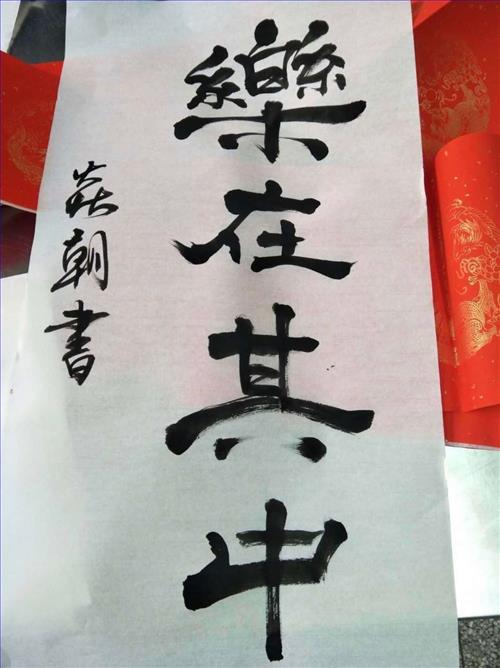 樂在其中
焱朝書